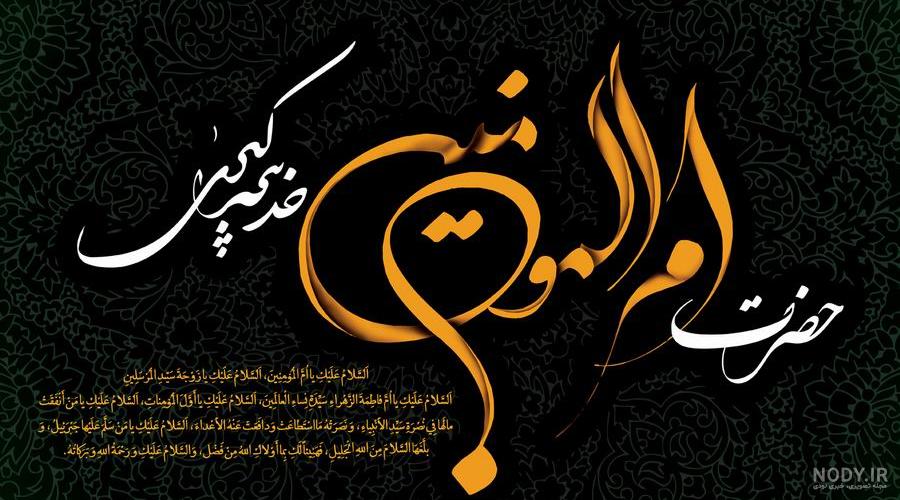 حضرت
ام المومنین
خدیجه کبری
اَلسَّلامُ عَلَیْكِ یا اُمَّ الْمُومِنینَ، اَلسَّلامُ عَلَیْكِ یا زَوْجَةَ سَیِّدِ الْمُرْسَلینَ
اَلسَّلامُ عَلَیْكِ یا اُمَّ فاطِمَةَ الزَّهْراءِ سَیِّدَةِ نِساءِ الْعالَمینَ، اَلسَّلامُ عَلَیْكِ یا اَوَّلَ الْمُومِناتِ، اَلسَّلامُ عَلَیْكِ یا مَنْ أَنْفَقَتْ
مالَها فی نُصْرَةِ سَیِّدِ الْاَنْبِیاءِ، وَ نَصَرَتْهُ مَا اسْتَطاعَتْ وَدافَعَتْ عَنْهُ الْاَعْداءَ، اَلسَّلامُ عَلَیْكِ یا مَنْ سَلَّمَ عَلَیْها جَبْرَئیلُ، وَ
بَلَّغَهَا السَّلامَ مِنَ اللهِ الْجَلیلِ، فَهَنیئاً لَكِ بِما اَوْلاكِ اللهُ مِنْ فَضْلٍ، وَالسَّلامُ عَلَیْكِ وَ رَحْمَةُ اللهِ وَ بَرَكاتُهُ.
NODY.IR
مجله تصویری، خبری نودی